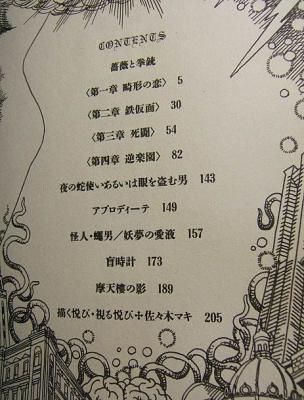 CONTENTS
薔薇と拳銃
〈第一章 畸形の恋〉 5
〈第二章 鉄仮面〉 30
〈第三章 死闘〉 54
〈第四章 逆楽園〉 82
夜の蛇使いあるいは眼を盗む男 143
アプロディーテ 149
怪人・蠅男／妖夢の愛液 157
盲時計 173
摩天樓の影 189
描く悦び・視る悦び✢佐々木マキ 205